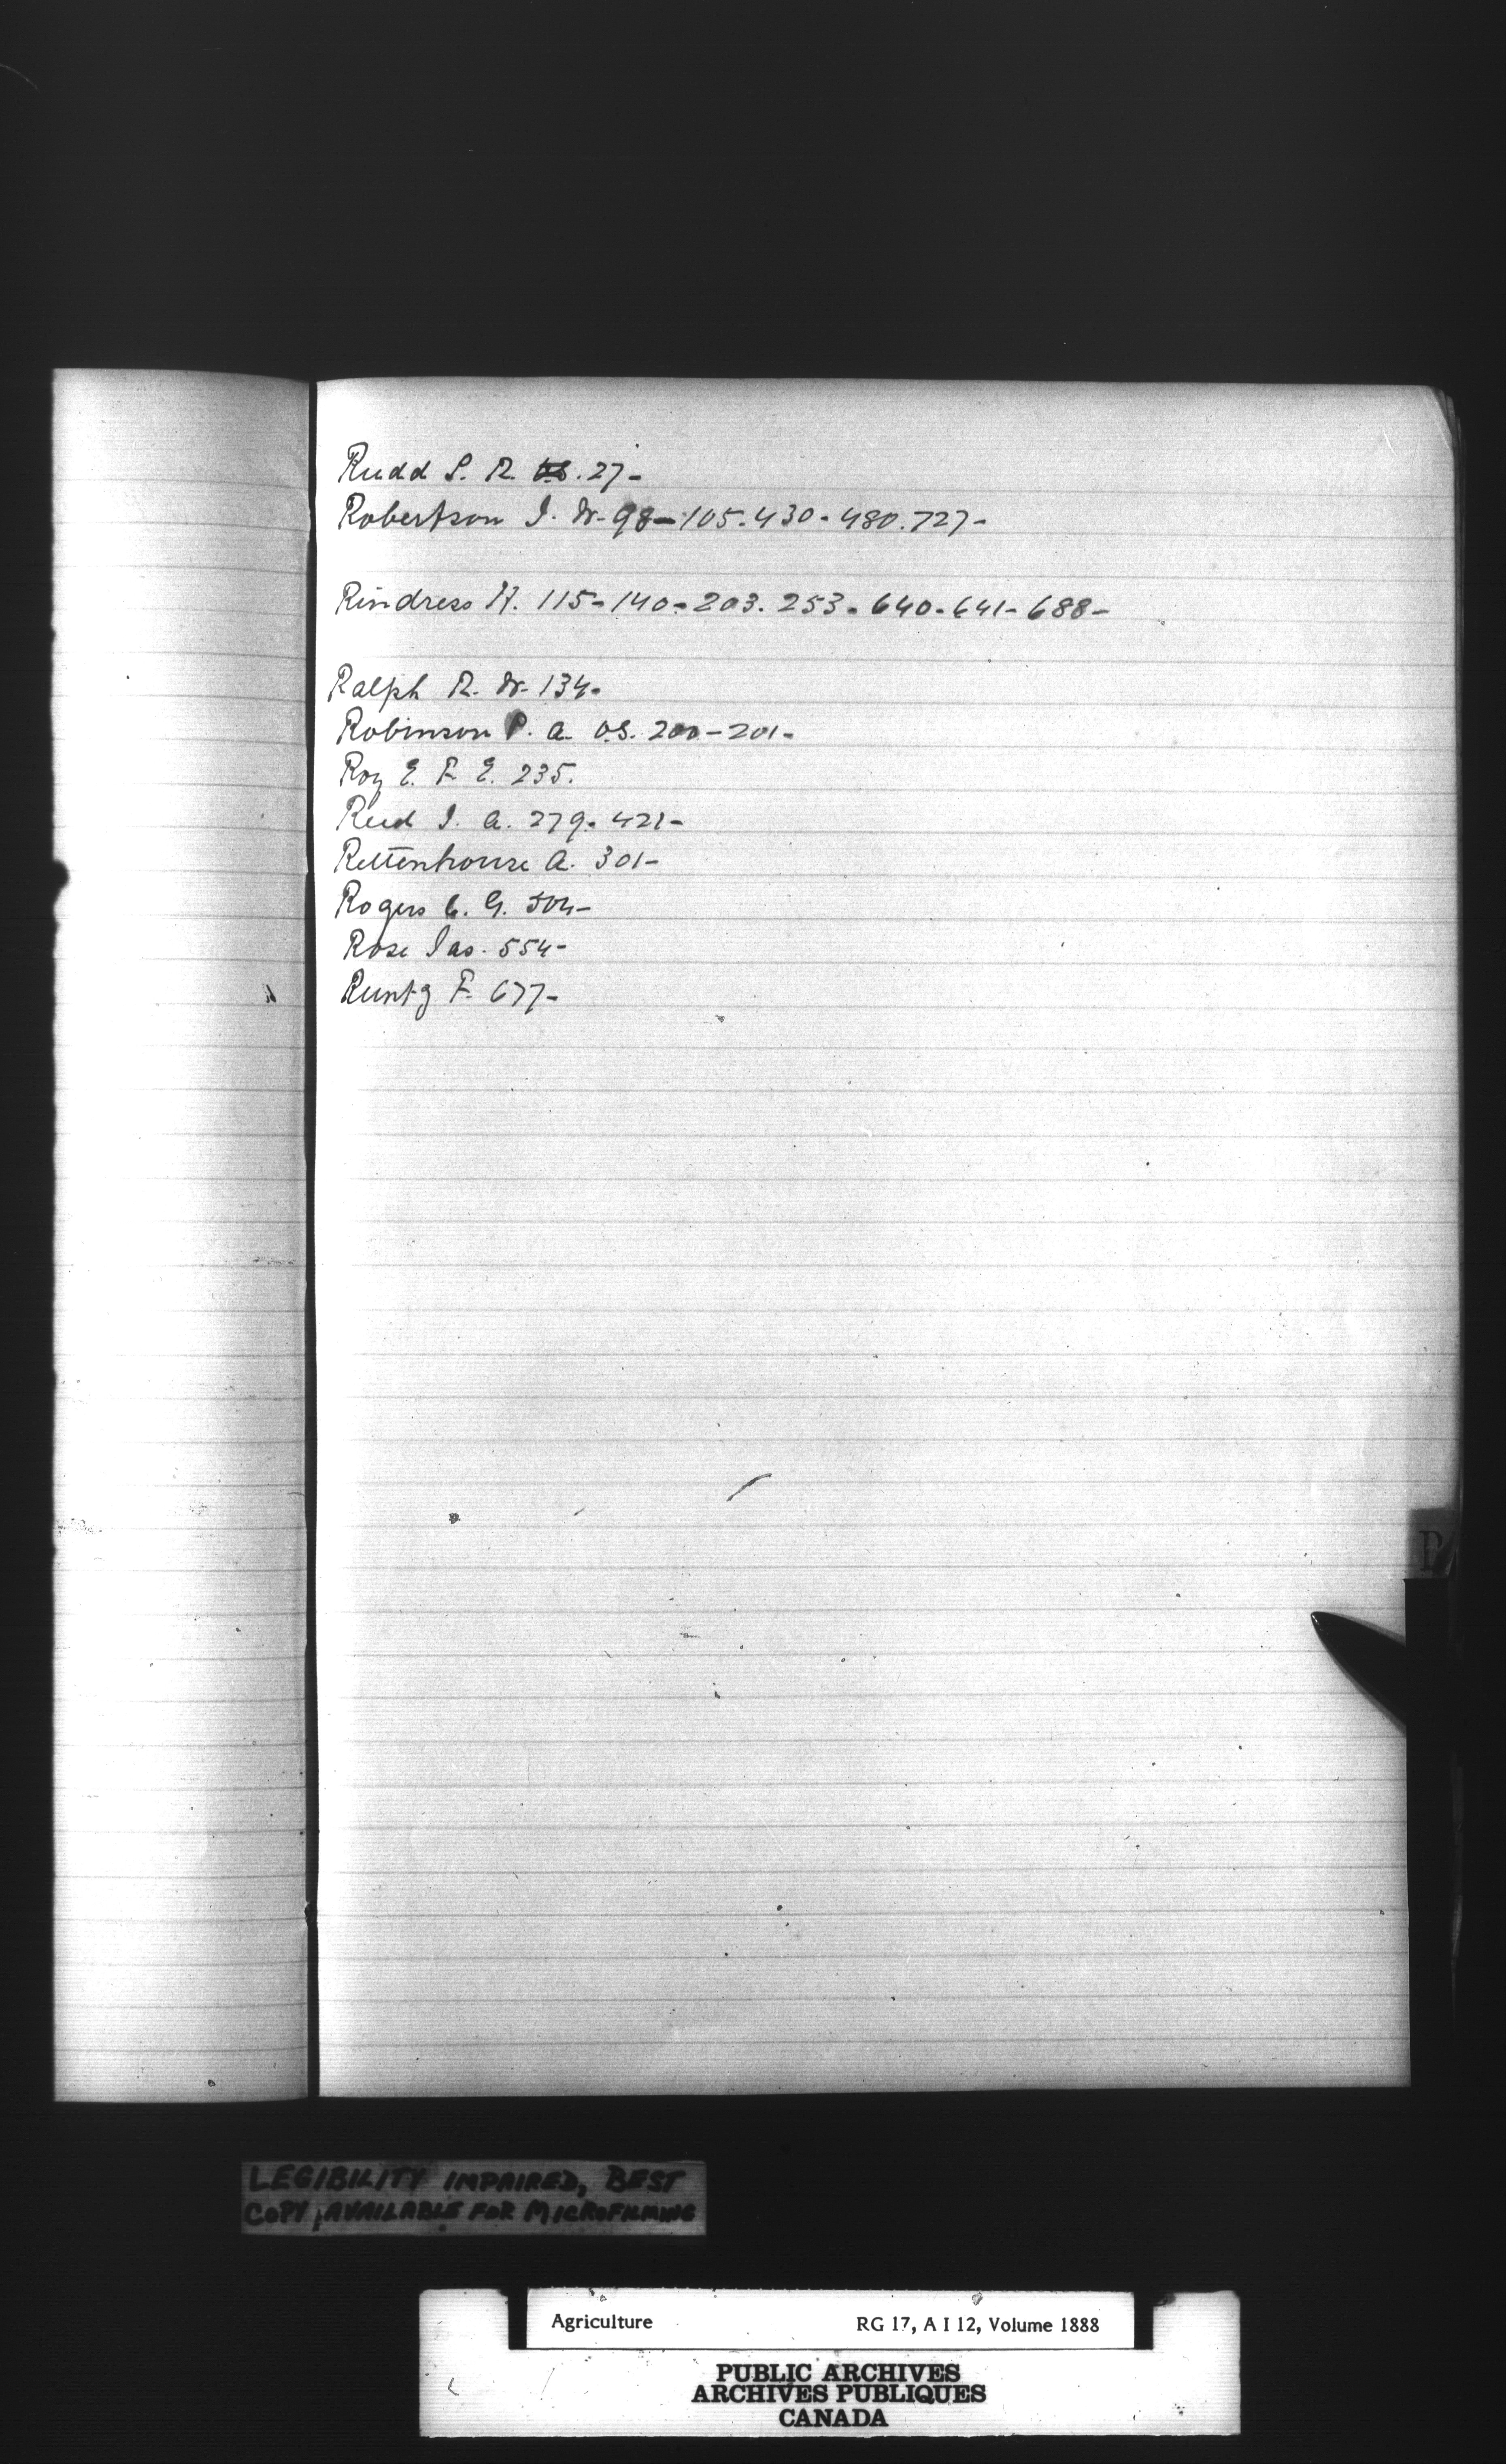 Rudd S. R. 27-
Robertson J. W. 98-105-430-480.727-
Rindress H. 115-140-203.253-640-641-688-
Ralph R. W. 134-
Robinson P. A. O.S. 200-201-
Roy E. F. E. 235.
Reid J. A. 279. 421-
Rettenhouse A. 301-
Rogers C. G. 504-
Rose Jas. 554-
Runtz F. 677-
R
LEGIBILITY IMPAIRED, BEST
COPY AVAILABLE FOR MICROFILMING
Agriculture RG 17, A I 12, Volume 1888
PUBLIC ARCHIVES
ARCHIVES PUBLIQUES
CANADA